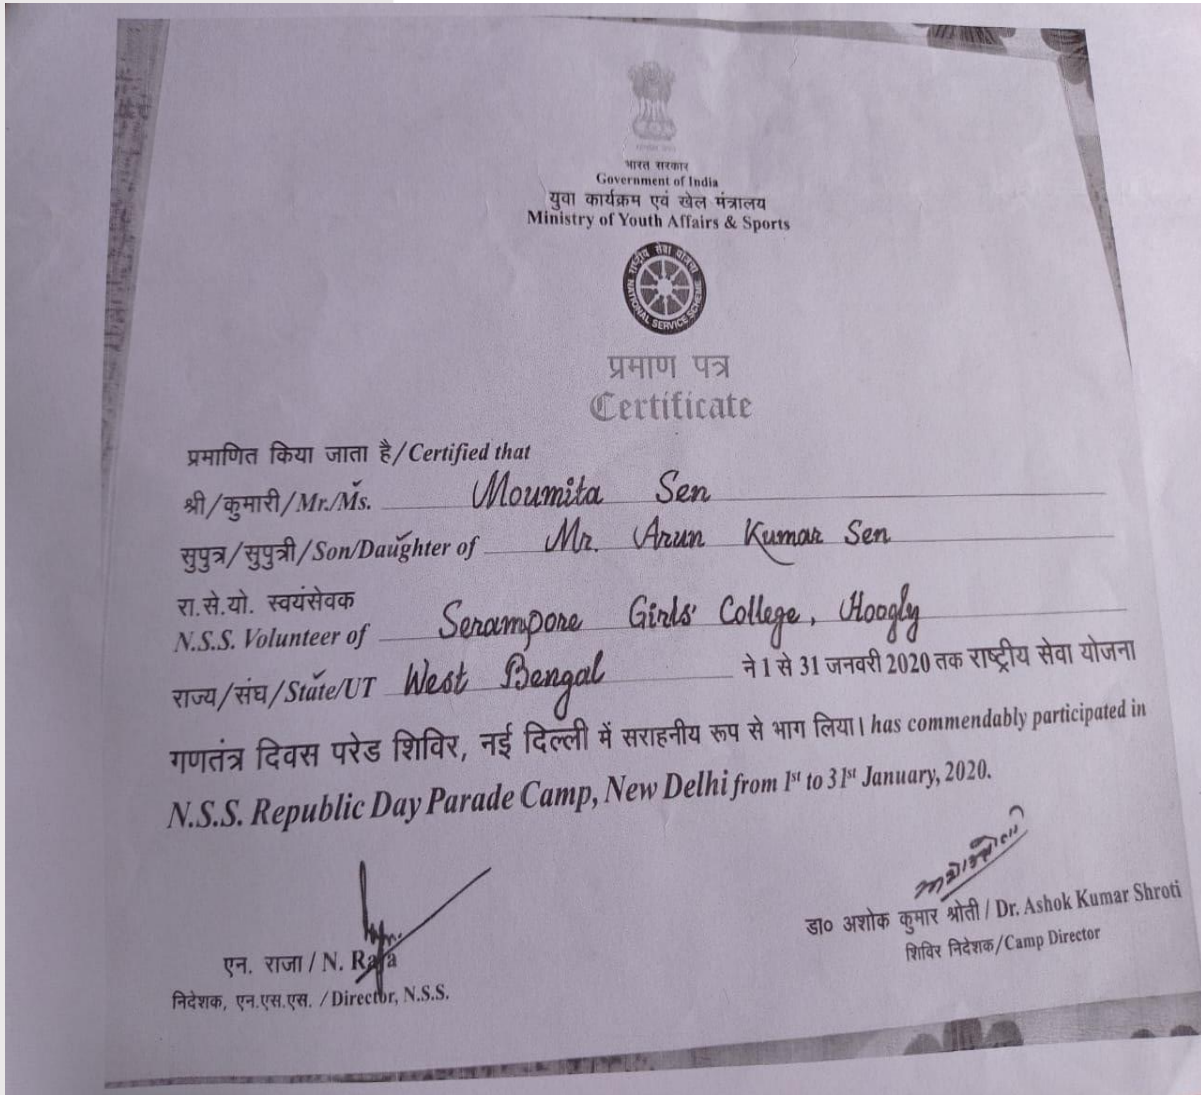 भारत सरकार
Government of India
युवा कार्यक्रम एवं खेल मंत्रालय
Ministry of Youth Affairs & Sports
राष्ट्रीय सेवा योजना
NATIONAL SERVICE SCHEME
प्रमाण पत्र
Certificate
प्रमाणित किया जाता है/Certified that
श्री/कुमारी/Mr./Ms. Moumita Sen
सुपुत्र/सुपुत्री/Son/Daughter of Mr. Arun Kumar Sen
रा.से.यो. स्वयंसेवक
N.S.S. Volunteer of Serampore Girls' College, Hoogly
राज्य/संघ/State/UT West Bengal ने 1 से 31 जनवरी 2020 तक राष्ट्रीय सेवा योजना
गणतंत्र दिवस परेड शिविर, नई दिल्ली में सराहनीय रूप से भाग लिया। has commendably participated in
N.S.S. Republic Day Parade Camp, New Delhi from 1st to 31st January, 2020.
एन. राजा / N. Raja
निदेशक, एन.एस.एस. / Director, N.S.S.
डा० अशोक कुमार श्रोती / Dr. Ashok Kumar Shroti
शिविर निदेशक/Camp Director